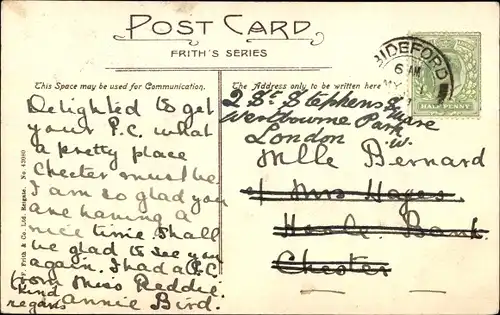 POST CARD
FRITH'S SERIES
This Space may be used for Communication.
The Address only to be written here
BIDEFORD
6 AM
MY
HALFPENNY
Delighted to get
your P.C. what
a pretty place
Chester must be.
I am so glad you
are having a
nice time. Shall
be glad to see you
again. I had a P.C
from Miss Reddie.
Kind
regards Annie Bird.
F. Frith & Co. Ltd. Reigate. No. 42980
2 St Stephens Square
Westbourne Park
London W.
Mlle Bernard
Mrs Hayes.
Hoole Bank
Chester